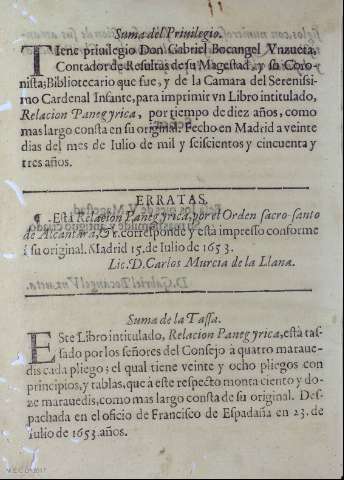 Suma del Privilegio.
Tiene privilegio Don Gabriel Bocangel Vnzueta,
Contador de Resultas de su Magestad, y su Coro-
nista; Bibliotecario que fue, y de la Camara del Serenissi-
mo Cardenal Infante, para imprimir vn Libro intitulado,
Relacion Panegyrica, por tiempo de diez años, como
mas largo consta en su original. Fecho en Madrid a veinte
dias del mes de Iulio de mil y seiscientos y cincuenta y
tres años.
ERRATAS.
¶. Està Relacion Panegyrica, por el Orden sacro-santo
de Alcantara, &c. corresponde y està impresso conforme
á su original. Madrid 15. de Iulio de 1653.
Lic. D. Carlos Murcia de la Llana.
Suma de la Tassa.
Este Libro intitulado, Relacion Panegyrica, està tas-
sado por los señores del Consejo à quatro maraue-
dis cada pliego; el qual tiene veinte y ocho pliegos con
principios, y tablas, que à este respecto monta ciento y do-
ze marauedis, como mas largo consta de su original. Des-
pachada en el oficio de Francisco de Espadaña en 23. de
Iulio de 1653. años.